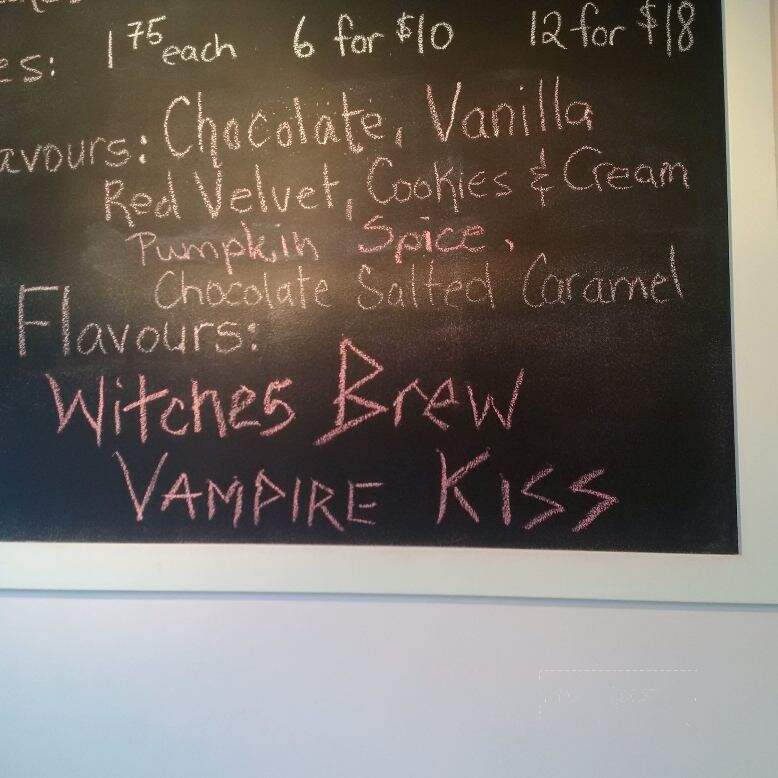 es: 1 75 each 6 for $10 12 for $18
avours: Chocolate, Vanilla
Red Velvet, Cookies & Cream
Pumpkin Spice,
Chocolate Salted Caramel
Flavours:
Witches Brew
VAMPIRE KISS